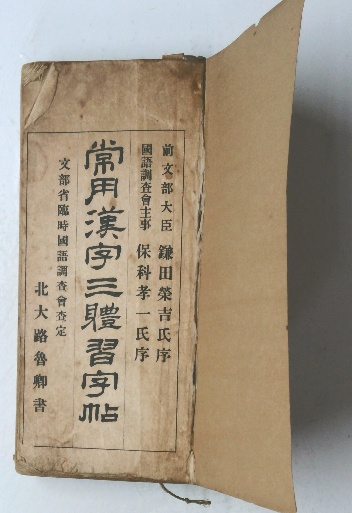 前文部大臣 鎌田榮吉氏序
國語調查會主事 保科孝一氏序
常用漢字三體習字帖
文部省臨時國語調查會查定
北大路魯卿書